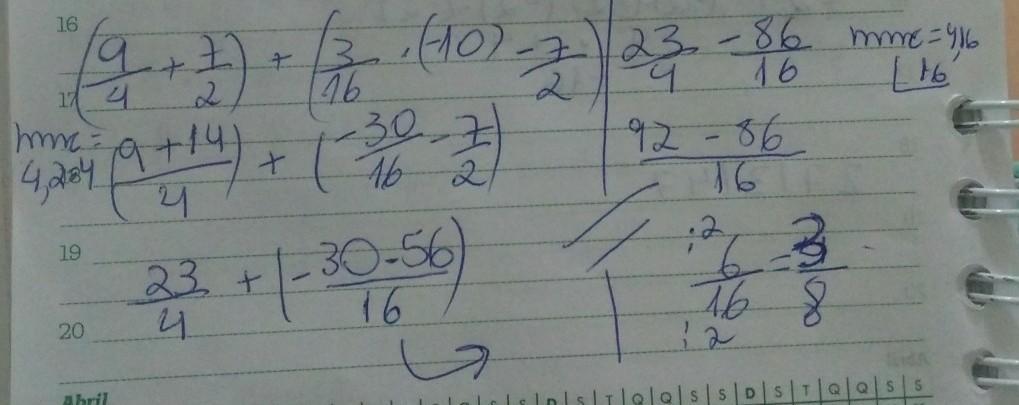 16
(9/4 + 7/2) + (3/16 . (-10) - 7/2)
17
mmc =
4,2=4
(9 + 14)/4 + (-30/16 - 7/2)
19
23/4 + (-30-56/16)
20
23/4 - 86/16
mmc = 4,16
16
92 - 86/16
:2
6/16 = 3/8
:2
Abril
S S D S T Q Q S S D S T Q Q S S